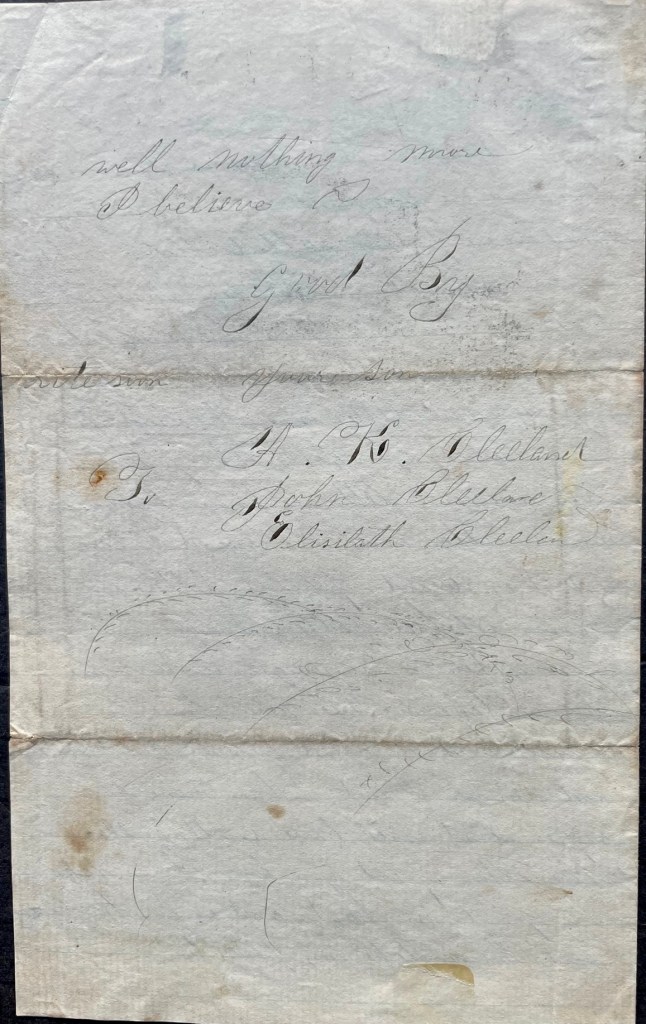 well nothing more
I believe
Good By
rite soon your son
A. K. Cleeland
To John Cleelan
Elisibath Cleelan